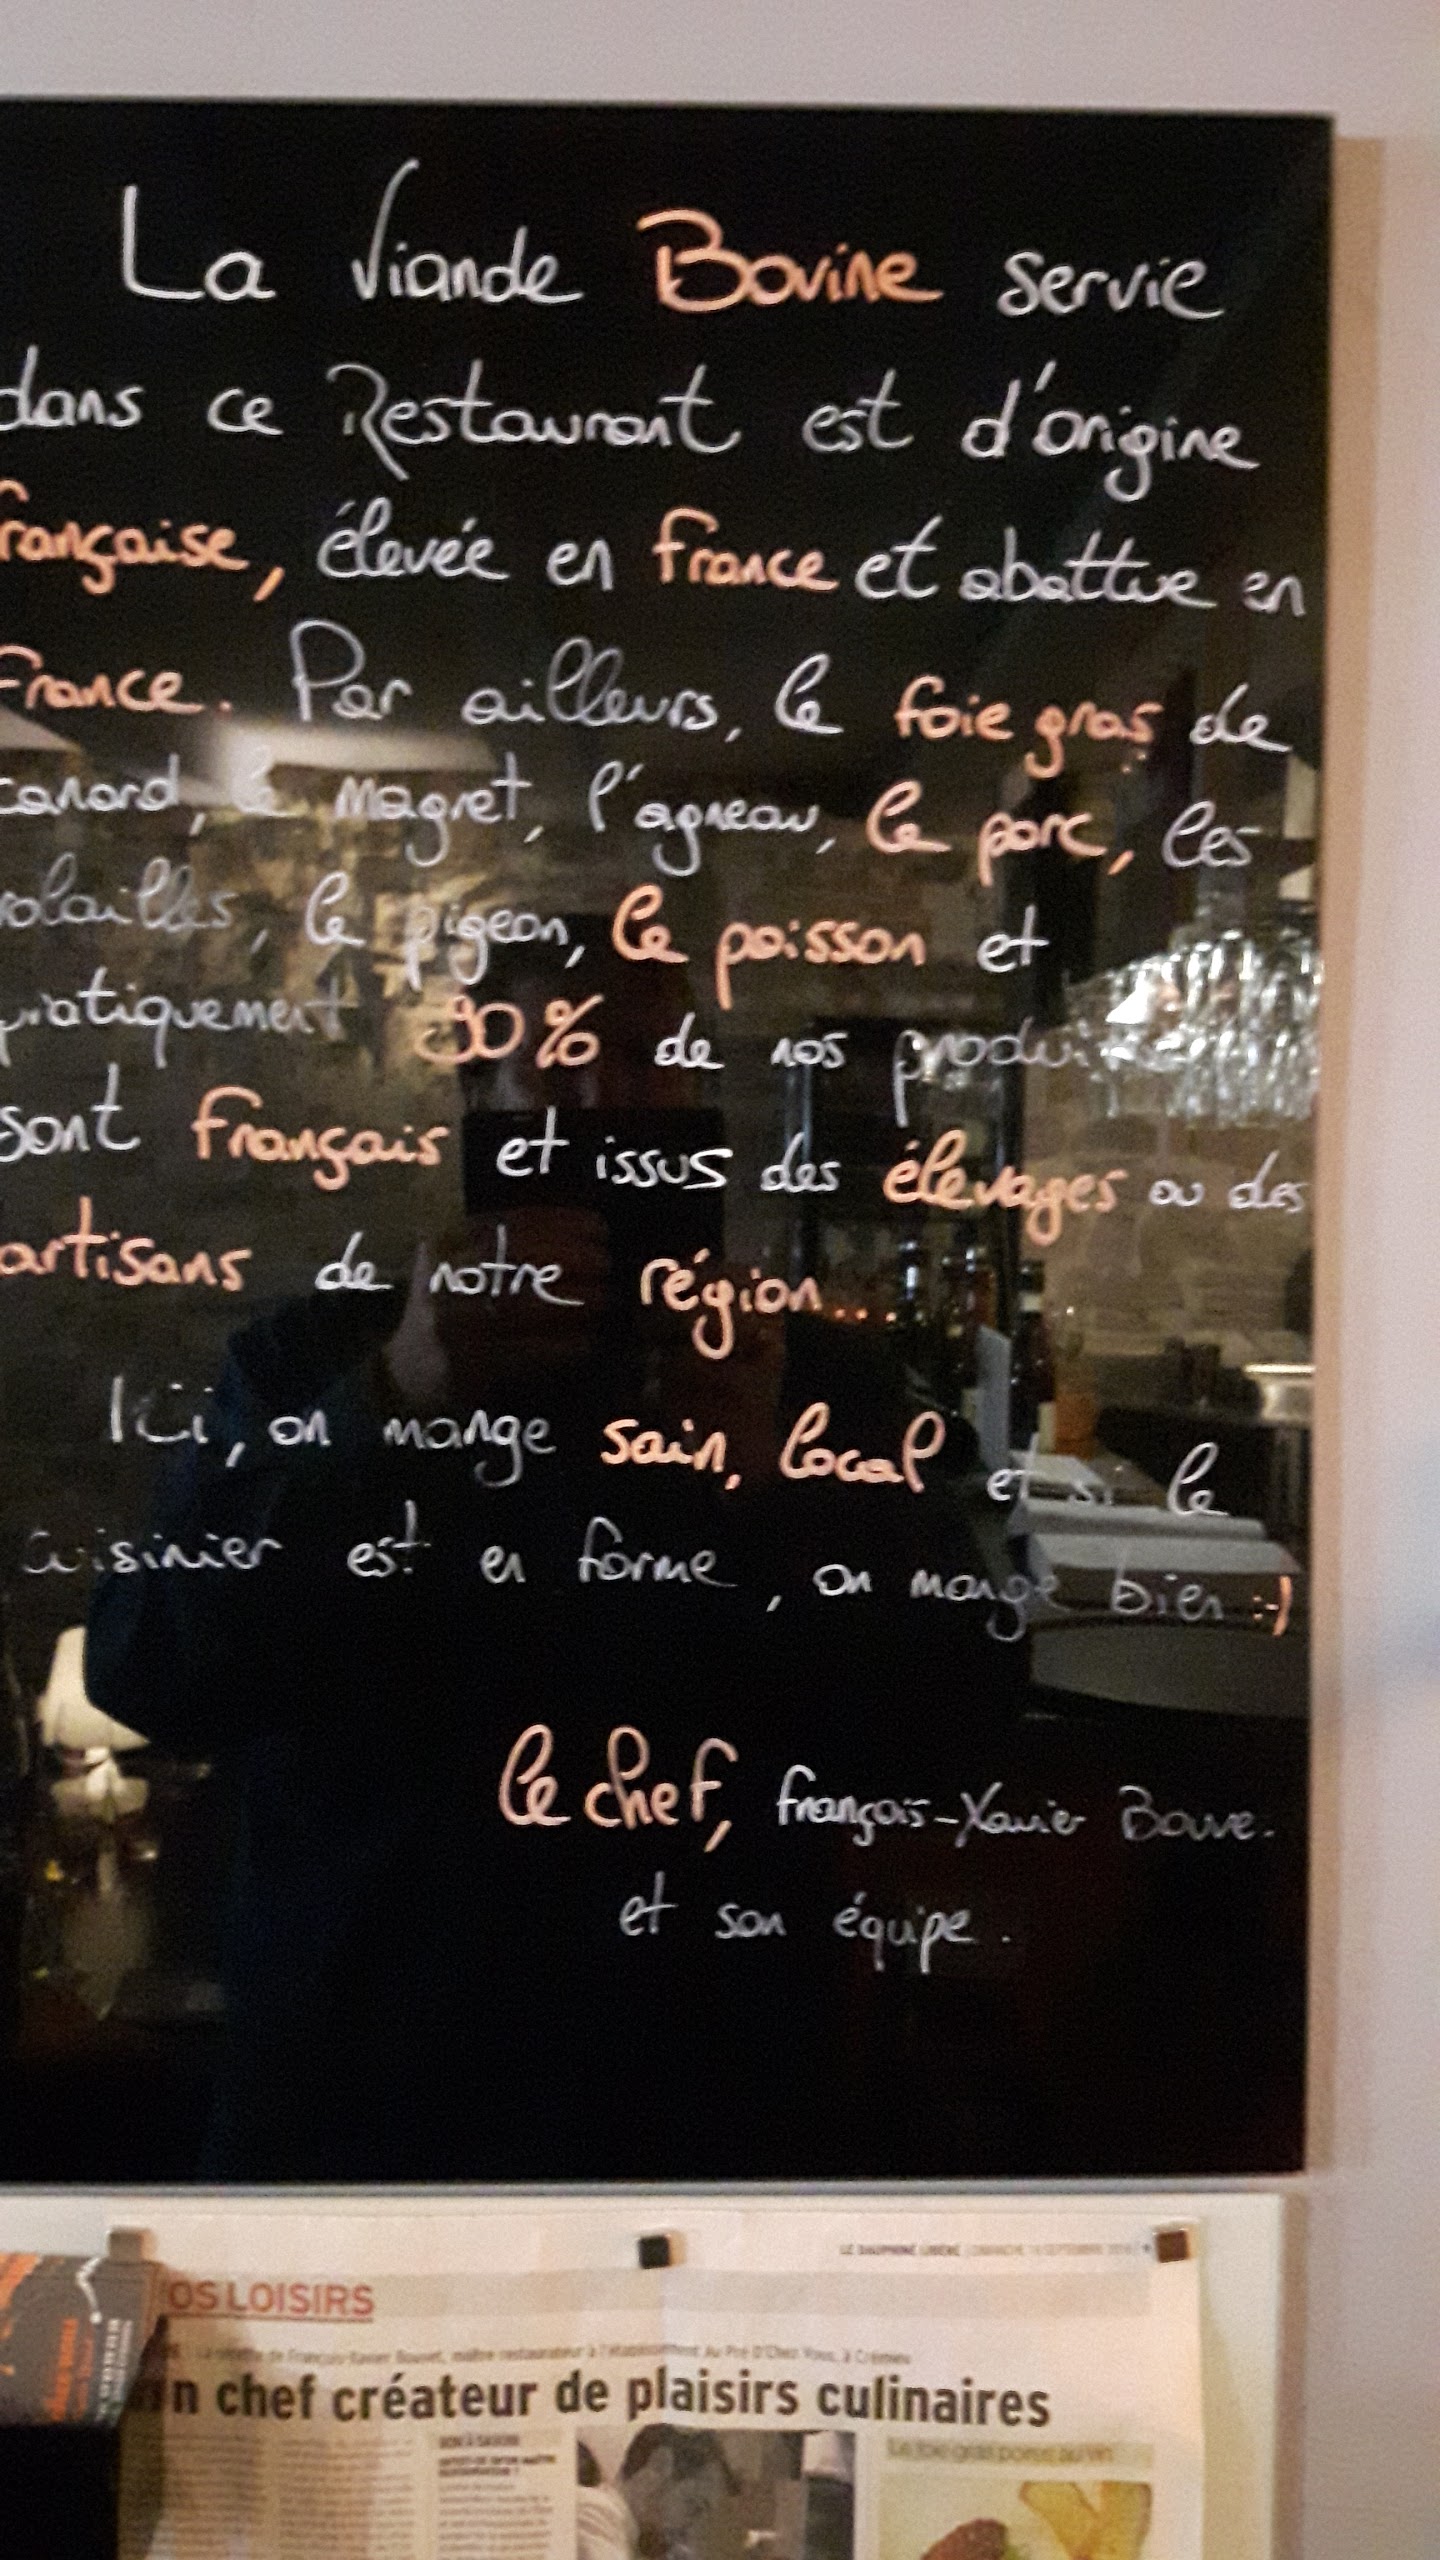 La Viande Bovine servie
dans ce Restaurant est d'origine
française, élevée en France et abattue en
France. Par ailleurs, le foie gras de
canard, le magret, l'agneau, le porc, les
volailles, le pigeon, le poisson et
pratiquement 90% de nos produits
sont français et issus des élevages ou des
artisans de notre région...
Ici, on mange sain, local et si le
cuisinier est en forme, on mange bien :-)
le chef, françois-Xavier Bouve.
et son équipe.
LE DAUPHINÉ LIBÉRÉ | DIMANCHE SEPTEMBRE
OS LOISIRS
La recette de François-Xavier Bouvet, maître restaurateur à l'établissement Au Pré D'Chez Vous, à Crémieu
n chef créateur de plaisirs culinaires
BON À SAVOIR
Le foie gras poires au vin